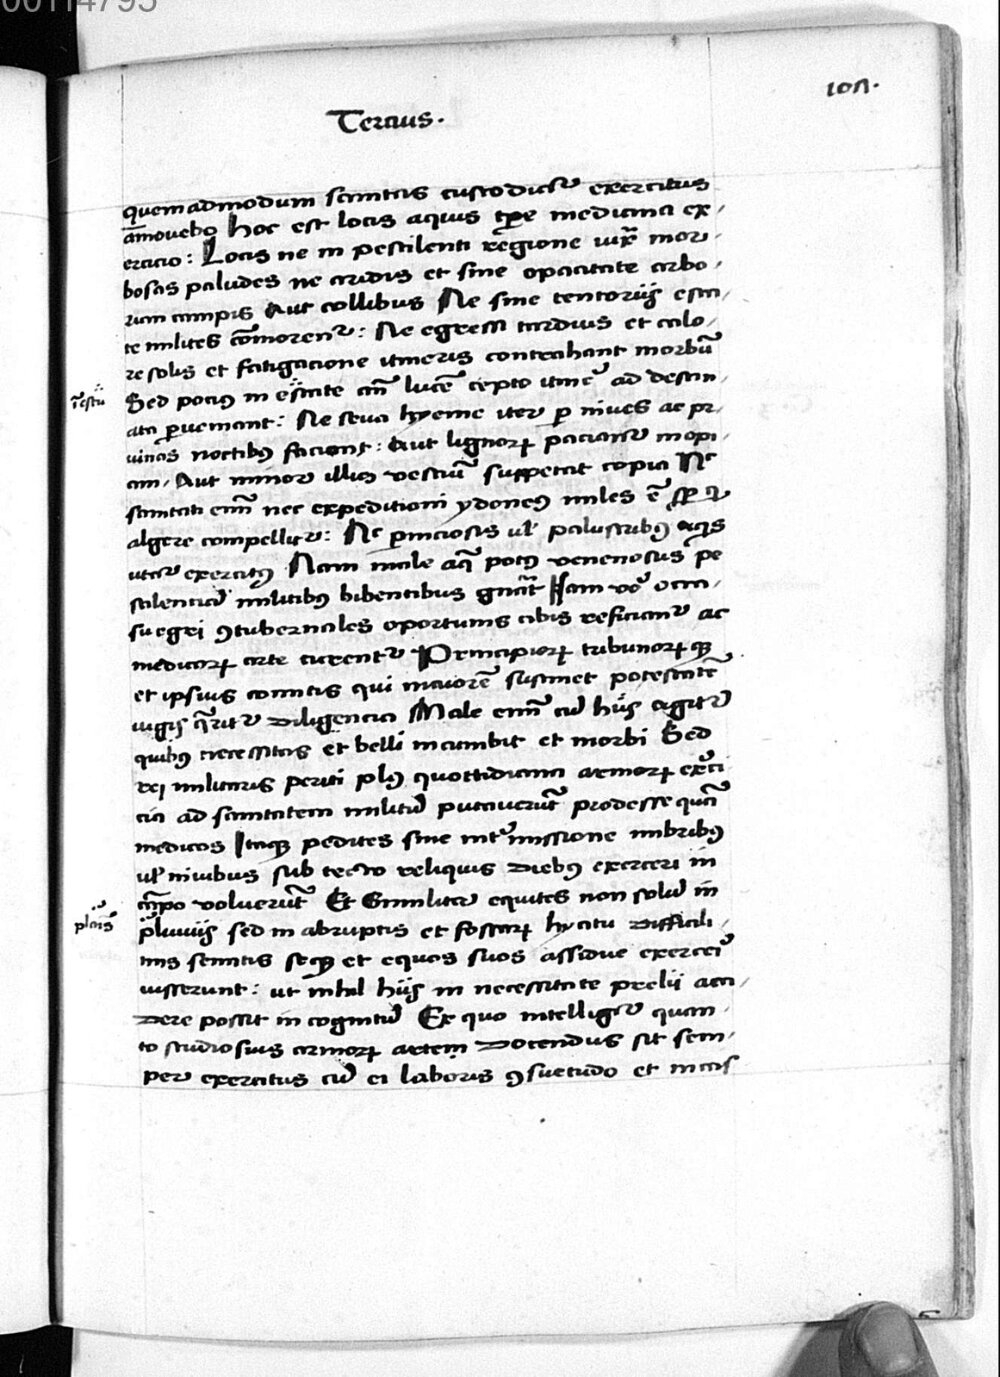 00114795
101.
Tercius.
quemadmodum sanitas custodiať exercitus
am̄ouebo hoc est locis aquis tp̄e medicina ex,
ercicio: Locis ne in pestilenti regione iuxͣ mor,
bosas paludes ne aridis et sine opacitate arbo,
rum campis Aut collibus Ne sine tentoriis esta,
te milites com̄orent᷑: Ne egressi tardius et calo,
re solis et fatigacione itineris contrahant morbū
i͞ estu
Sed pocius in estate an̄ lucē cepto itine᷑ ad destin,
ata ꝑueniant: Ne seua hyeme iter ꝑ niues ac pr,
uinas noctibꝰ faciant: Aut lignoꝝ paciant᷑ inopi,
am, Aut minor illis vestiū suppetat copia Nͨ
sanitati em̄ nec expeditioni ydoneꝰ miles ē
algere compellit᷑: Nͨ ꝑniciosis vl̓ palustribꝰ aqͥs
utat᷑ exercitꝰ Nam male aq̄ potꝰ venenosus pe
stilenciā militibꝰ bibentibus gn̄at Iam vͦ occa,
su egri ꝯtubernales oportunis cibis reficiant᷑ ac
medicoꝝ arte curent᷑ Principioꝝ tribunoꝝqꝫ
et ipsius comitis qui maiorē sustinet potestatē
iugis q̄rit᷑ diligencia Male em̄ cū hiis agit᷑
quibꝰ necessitas et belli incumbit et morbi Sed
rei militaris periti plꝰ quottidiana armoꝝ ex̓ci
cia ad sanitatem militū putauerūt prodesse quā
medicos Itaqꝫ pedites sine int̓missione imbribꝰ
vl̓ niuibus sub tecto reliquis diebꝰ exerceri in
cāpo voluerūt Et similiter equites non solū in
pluuiis sed in abruptis et fossaꝝ hyatu difficili,
mis semitis seqꝫ et equos suos assidue exercei᷑
iusserunt: ut nihil hiis in necessitate prelii acci,
dere possit in cognitū Ex quo intelligit᷑ quan,
to studiosius armoꝝ artem docendus sit sem,
per exercitus cū ei laboris ꝯsuetudo et in cas